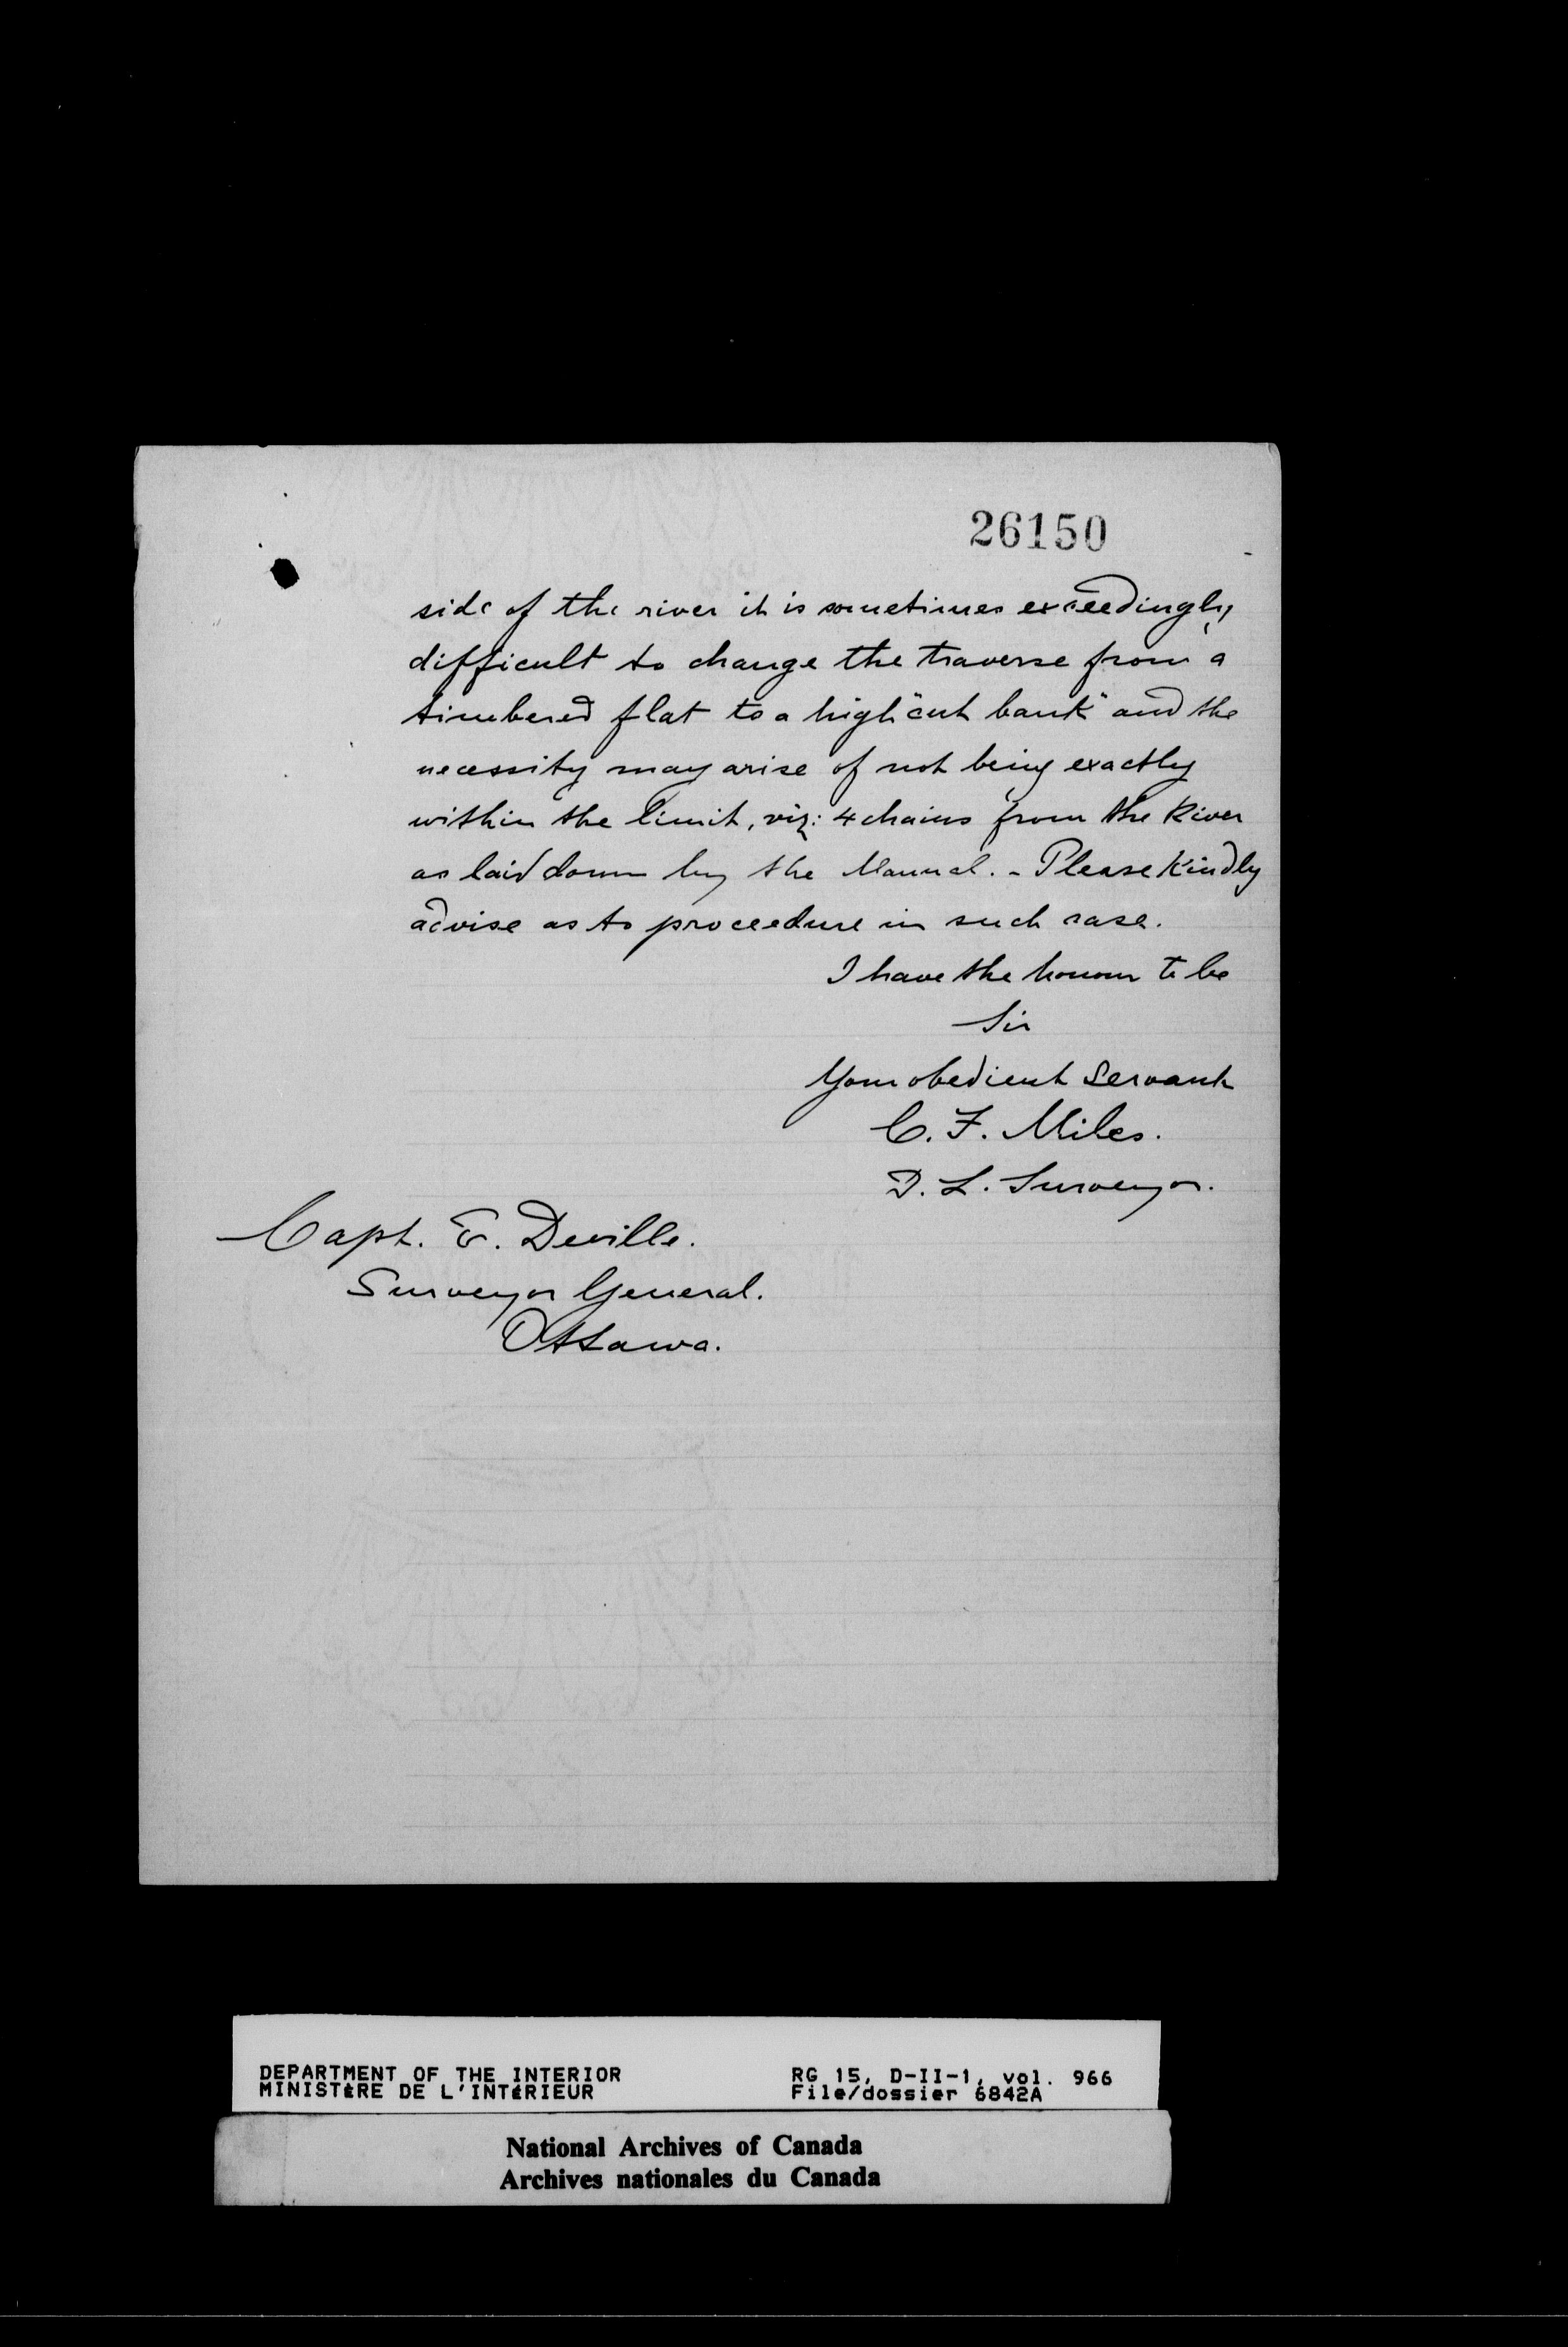 26150
side of the river it is sometimes exceedingly
difficult to change the traverse from a
timbered flat to a high "cut bank" and the
necessity may arise of not being exactly
within the limit, viz: 4 chains from the River
as laid down by the Manual. - Please kindly
advise as to proceedure in such case.
I have the honour to be
Sir
Your obedient Servant
C. F. Miles.
D. L. Surveyor.
Capt. E. Deville.
Surveyor General.
Ottawa.
DEPARTMENT OF THE INTERIOR
MINISTÈRE DE L'INTÉRIEUR
RG 15, D-II-1, vol. 966
File/dossier 6842A
National Archives of Canada
Archives nationales du Canada